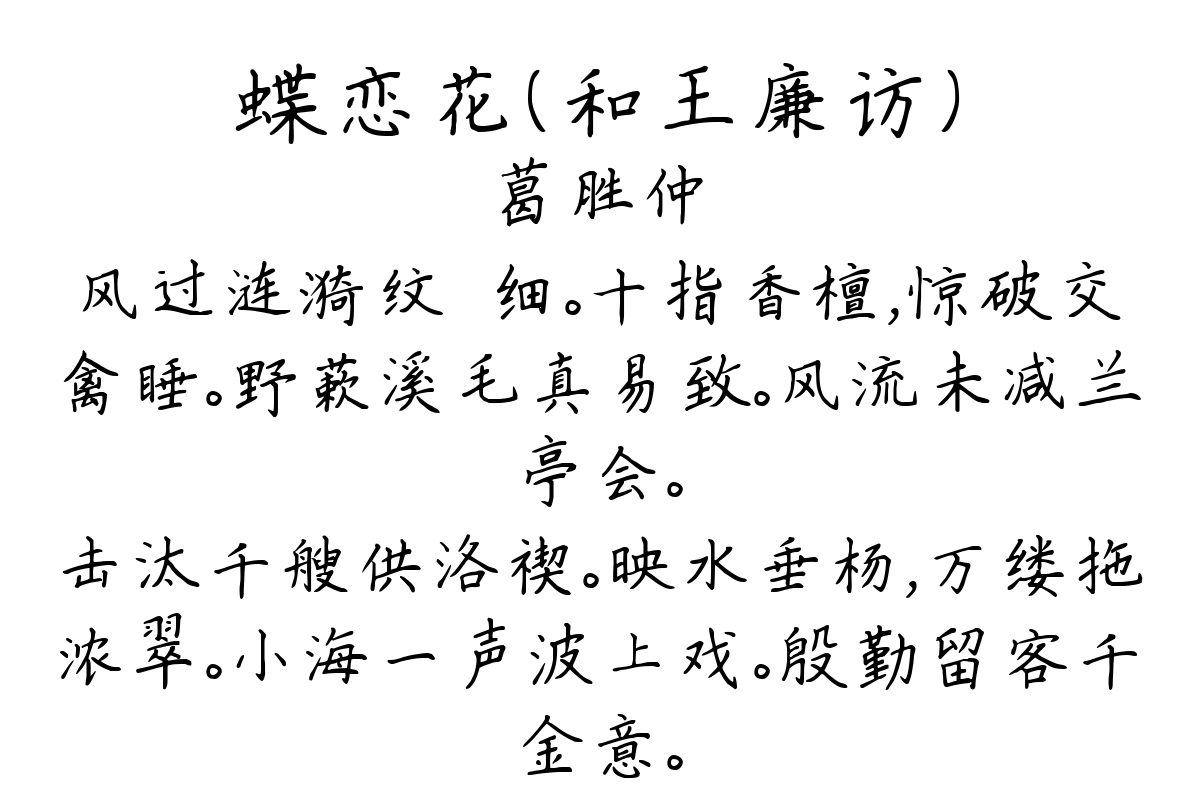 蝶恋花(和王廉访)
葛胜仲
风过涟漪纹 细。十指香檀,惊破交
禽睡。野蔌溪毛真易致。风流未减兰
亭会。
击汰千艘供洛禊。映水垂杨,万缕拖
浓翠。小海一声波上戏。殷勤留客千
金意。